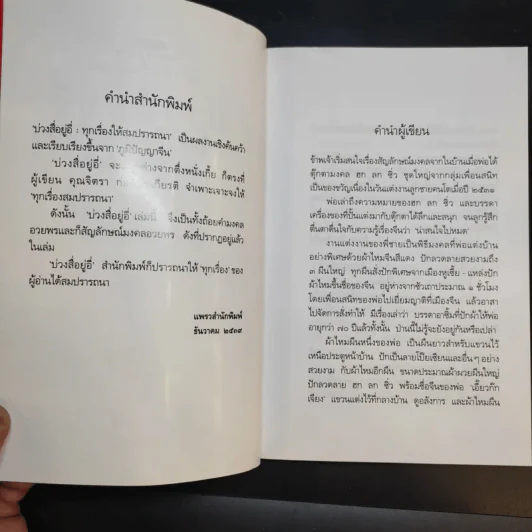 คำนำสำนักพิมพ์
'บ่วงสื่อยู่อี่ : ทุกเรื่องให้สมปรารถนา' เป็นผลงานเชิงค้นคว้า
และเรียบเรียงขึ้นจาก 'ภูมิปัญญาจีน'
'บ่วงสื่อยู่อี่' ต่างจากตึ่งหนั่งเกี้ย ก็ตรงที่
ผู้เขียน คุณจิตรา เกียรติ จำเพาะเจาะจงให้
'ทุกเรื่องสมปรารถนา'
ดังนั้น 'บ่วงสื่อยู่อี่' เล่มนี้ จึงเป็นทั้งถ้อยคำมงคล
อวยพรและก็สัญลักษณ์มงคลอวยพร ดังที่ปรากฏอยู่แล้ว
ในเล่ม
'บ่วงสื่อยู่อี่' สำนักพิมพ์ก็ปรารถนาให้ 'ทุกเรื่อง' ของ
ผู้อ่านได้สมปรารถนา
แพรวสำนักพิมพ์
ธันวาคม ๒๕๓๙
คำนำผู้เขียน
ข้าพเจ้าเริ่มสนใจเรื่องสัญลักษณ์มงคลจากในบ้านเมื่อพ่อได้
ตุ๊กตามงคล ฮก ลก ซิ่ว ชุดใหญ่จากกลุ่มเพื่อนสนิท
เป็นของขวัญเนื่องในวันแต่งงานลูกชายคนโตเมื่อปี ๒๕๓๑
พ่อเล่าถึงความหมายของฮก ลก ซิ่ว และบรรดา
เครื่องของที่ปั้นแต่งมากับตุ๊กตาได้ลึกและสนุก จนลูกรู้สึก
ตื่นตาตื่นใจกับความรู้เรื่องจีนว่า 'น่าสนใจไปหมด'
งานแต่งงานของพี่ชายเป็นพิธีมงคลที่พ่อแต่งบ้าน
อย่างพิเศษด้วยผ้าไหมจีนสีแดง ปักลวดลายสวยงามถึง
๓ ผืนใหญ่ ทุกผืนสั่งปักพิเศษจากเมืองหูเชี้ย - แหล่งปัก
ผ้าไหมขึ้นชื่อของจีน อยู่ห่างจากซัวเถาประมาณ ๑ ชั่วโมง
โดยเพื่อนสนิทของพ่อไปเยี่ยมญาติที่เมืองจีน แล้วอาสา
ไปจัดการสั่งทำให้ มีเรื่องเล่าว่า บรรดาอาซิ้มที่ปักผ้าให้พ่อ
อายุกว่า ๗๐ ปีแล้วทั้งนั้น ป่านนี้ไม่รู้จะยังอยู่กันหรือเปล่า
ผ้าไหมผืนหนึ่งของพ่อ เป็นผืนยาวสำหรับแขวนไว้
เหนือประตูหน้าบ้าน ปักเป็นลายโป๊ยเซียนและอื่นๆ อย่าง
สวยงาม กับผ้าไหมอีกผืน ขนาดประมาณผ้าผวยผืนใหญ่
ปักลวดลาย ฮก ลก ซิ่ว พร้อมชื่อจีนของพ่อ 'เอี้ยวก๊ก
เจียง' แขวนแต่งไว้ที่กลางบ้าน ดูอลังการ และผ้าไหมผืน